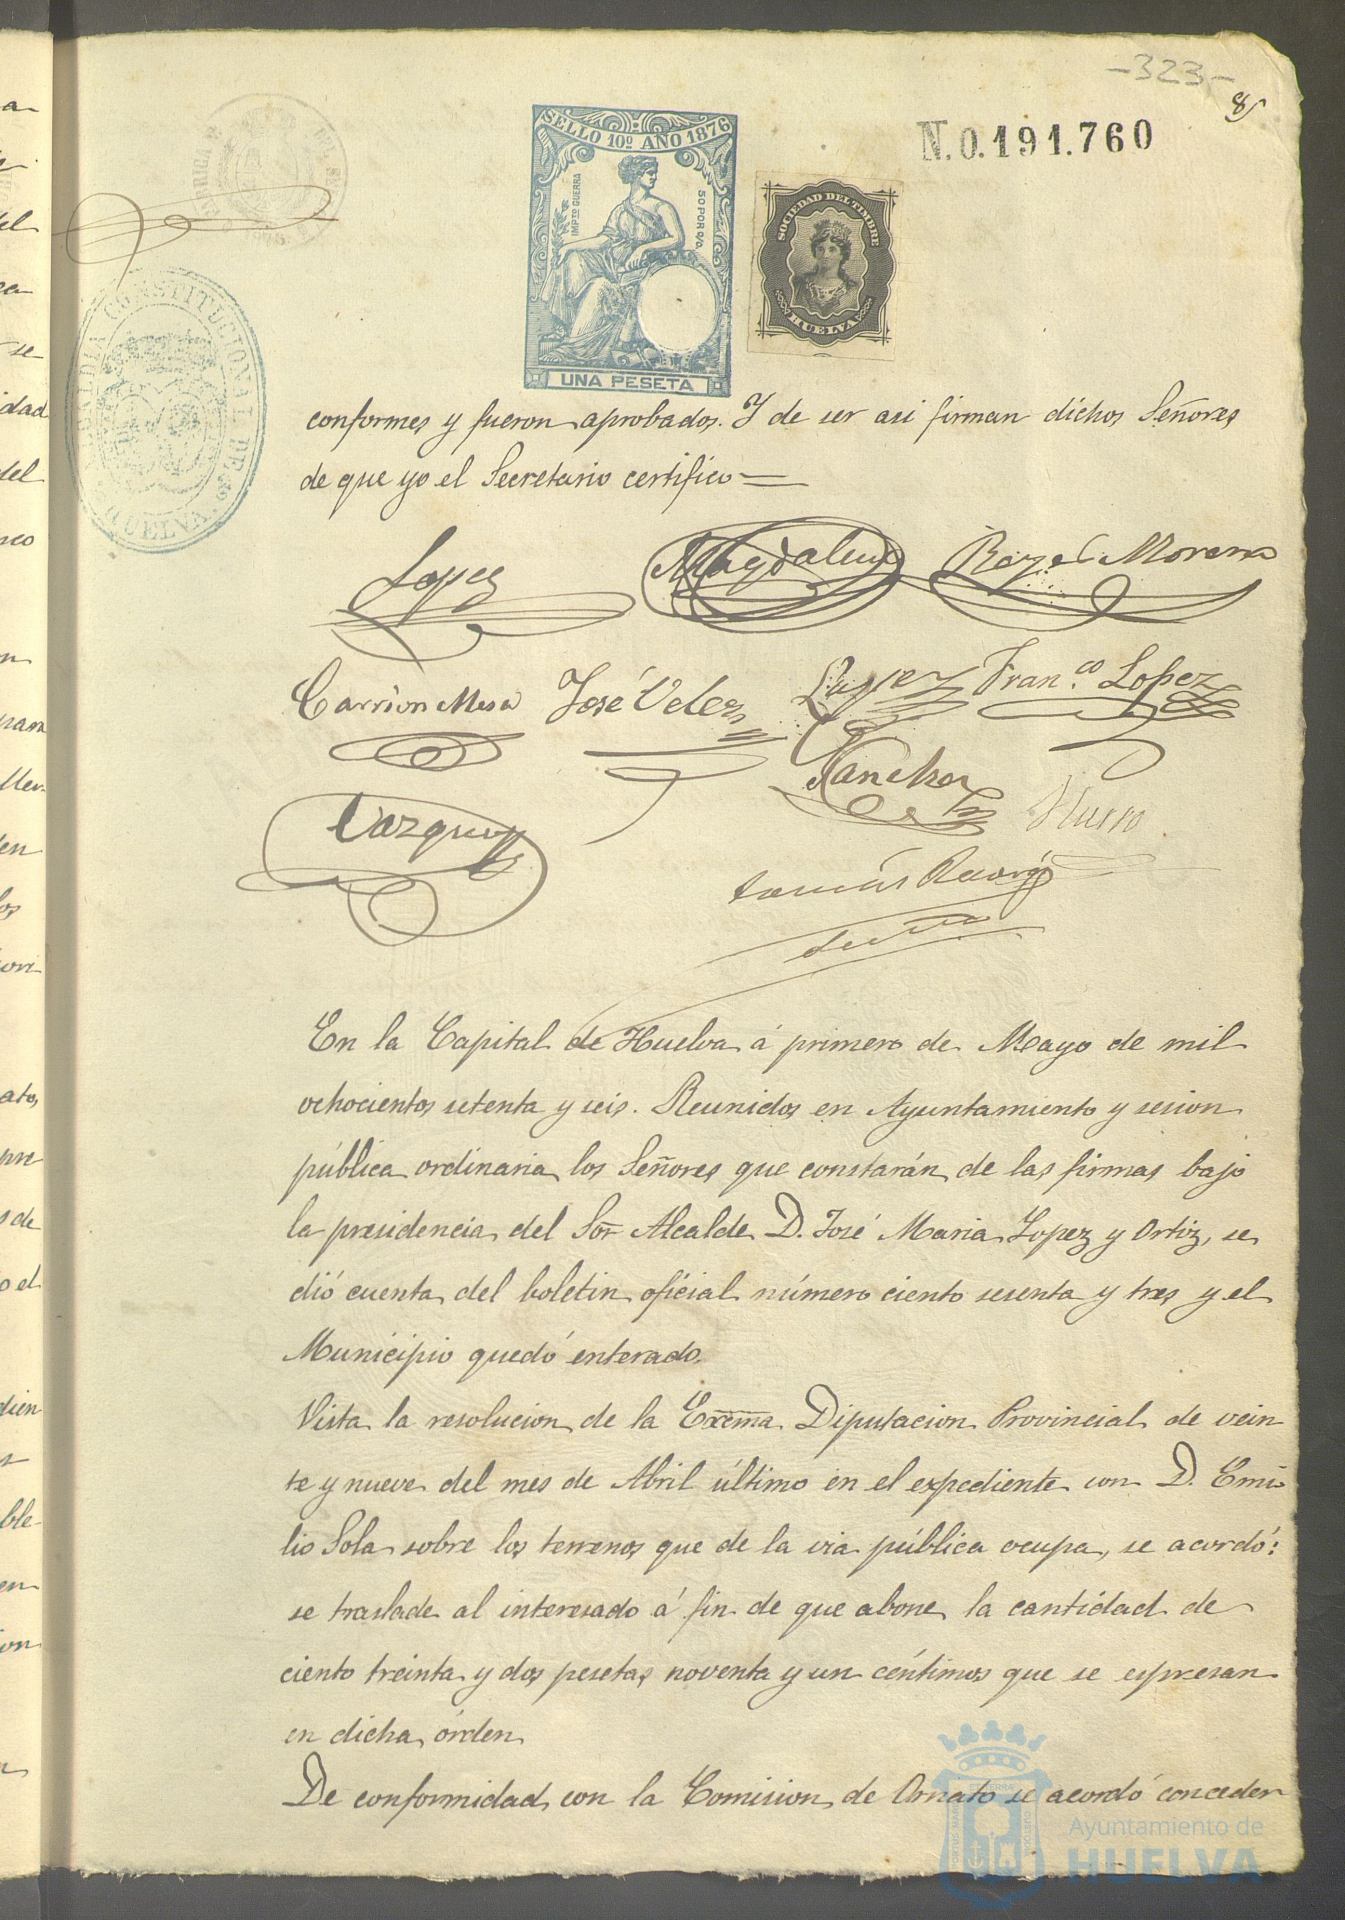 -323-
8
N.0.191.760
SELLO 10º AÑO 1876
IMPTO GUERRA
50 POR 0/0
UNA PESETA
SOCIEDAD DEL TIMBRE
HUELVA
ALCALDIA CONSTITUCIONAL DE
HUELVA
conformes y fueron aprobados. Y de ser asi firman dichos Señores
de que yo el Secretario certifico=
Lopez Magdalena Moreno
Carrion Mesa José Velez Franco. Lopez
Sanchez
Vazquez
Tomás
En la Capital de Huelva á primero de Mayo de mil
ochocientos setenta y seis. Reunidos en Ayuntamiento y sesion
pública ordinaria los Señores que constarán de las firmas bajo
la presidencia del Sor Alcalde D. José Maria Lopez y Ortiz, se
dió cuenta del boletin oficial número ciento sesenta y tres y el
Municipio quedó enterado.
Vista la resolucion de la Excma Diputacion Provincial de vein
te y nueve del mes de Abril último en el expediente con D. Emi
lio Sola sobre los terrenos que de la via pública ocupa, se acordó:
se traslade al interesado á fin de que abone la cantidad de
ciento treinta y dos pesetas noventa y un céntimos que se espresan
en dicha órden
De conformidad con la Comision de Ornato se acordó conceder
Ayuntamiento de
HUELVA